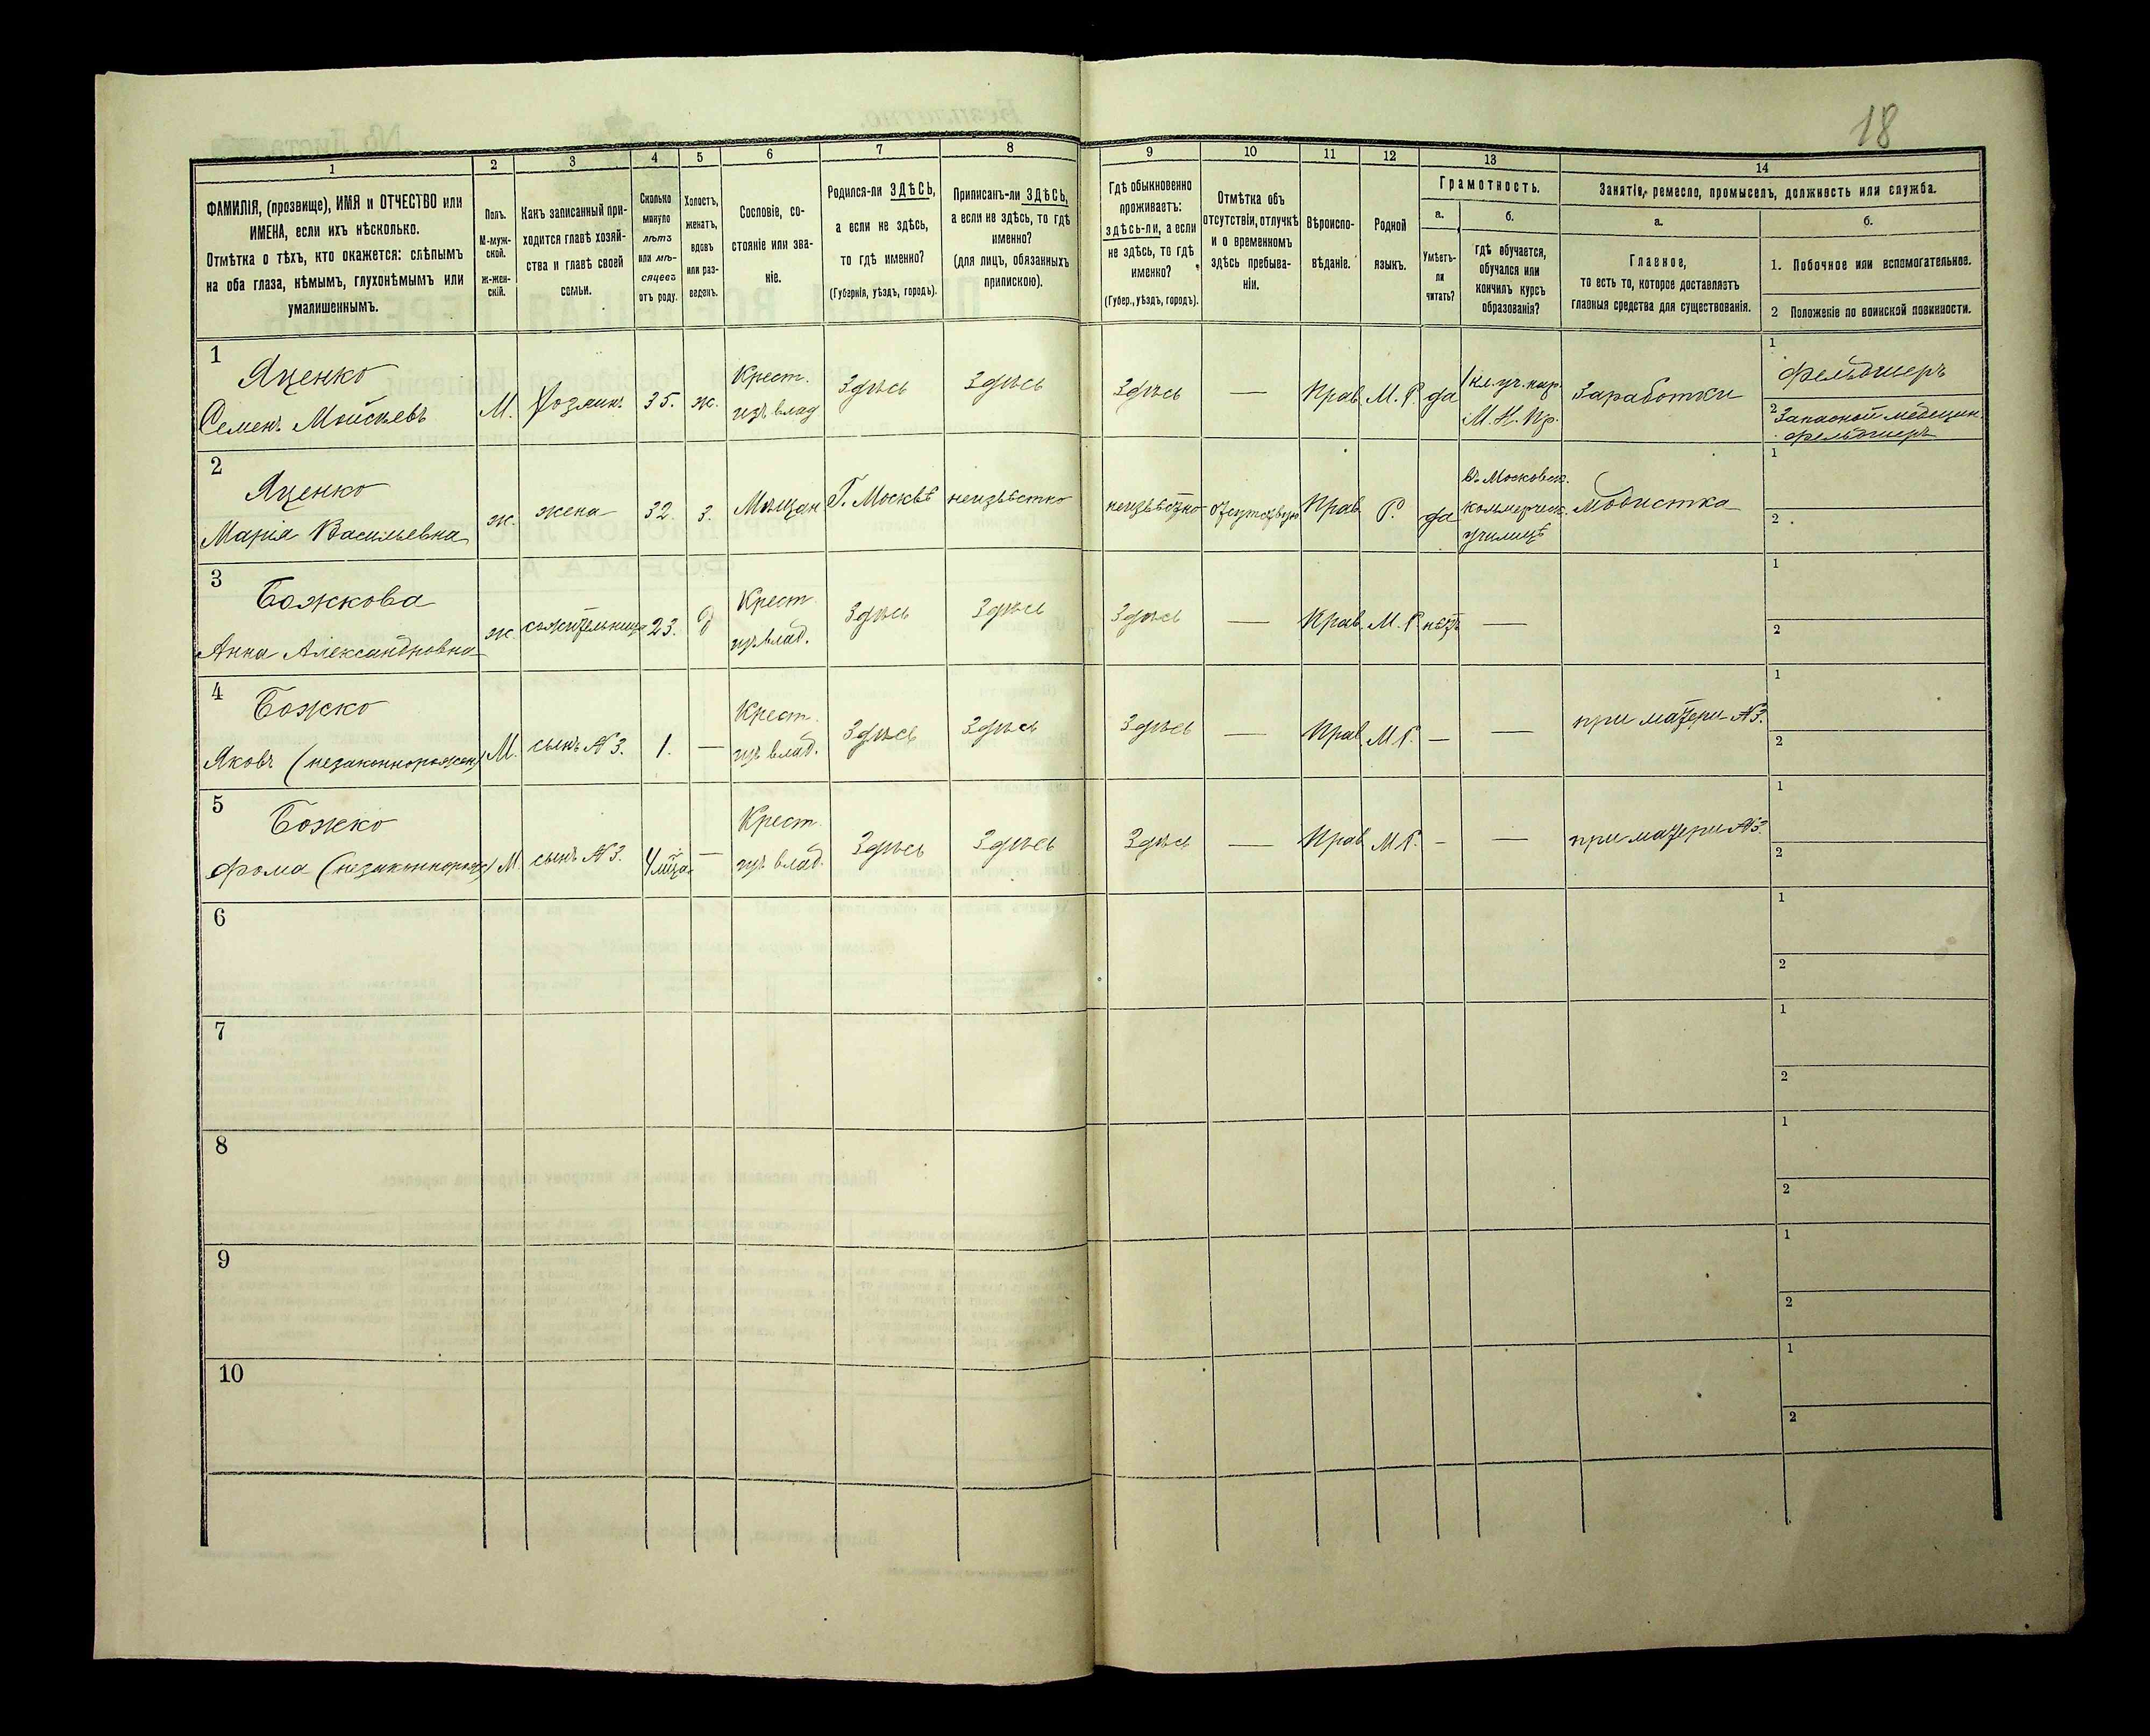 18
1
2
3
4
5
6
7
8
9
10
11
12
13
14
ФАМИЛІЯ, (прозвище), ИМЯ и ОТЧЕСТВО или
ИМЕНА, если ихъ нѣсколько.
Отмѣтка о тѣхъ, кто окажется: слѣпымъ
на оба глаза, нѣмымъ, глухонѣмымъ или
умалишеннымъ.
Полъ.
М-муж-
ской.
ж-жен-
скій.
Какъ записанный при-
ходится главѣ хозяй-
ства и главѣ своей
семьи.
Сколько
минуло
лѣтъ
или мѣ-
сяцевъ
отъ роду.
Холостъ,
женатъ,
вдовъ
или раз-
веденъ.
Сословіе, со-
стояніе или зва-
ніе.
Родился-ли ЗДѢСЬ,
а если не здѣсь,
то гдѣ именно?
(Губернія, уѣздъ, городъ).
Приписанъ-ли ЗДѢСЬ,
а если не здѣсь, то гдѣ
именно?
(для лицъ, обязанныхъ
припискою).
Гдѣ обыкновенно
проживаетъ:
здѣсь-ли, а если
не здѣсь, то гдѣ
именно?
(Губер., уѣздъ, городъ).
Отмѣтка объ
отсутствіи, отлучкѣ
и о временномъ
здѣсь пребыва-
ніи.
Вѣроиспо-
вѣданіе.
Родной
языкъ.
Грамотность.
а.
Умѣетъ-
ли
читать?
б.
Гдѣ обучается,
обучался или
кончилъ курсъ
образованія?
Занятіе, ремесло, промыселъ, должность или служба.
а.
Главное,
то есть то, которое доставляетъ
главныя средства для существованія.
б.
1. Побочное или вспомогательное.
2 Положеніе по воинской повинности.
1
Яценко
Семенъ Мойсѣевъ
М.
Хозяинъ
35.
ж.
Крест.
изъ влад
Здѣсь
Здѣсь
Здѣсь
—
Прав
М. Р.
да
1 кл. уч. нар.
М. Н. Пр.
Заработки
1
Фельдшеръ
2
Запасной медецин.
фельдшеръ
2
Яценко
Марія Васильевна
ж.
жена
32.
З.
Мѣщан
Г. Москвѣ
неизвѣстно
неизвѣстно
Прав.
Р.
да
въ Московск.
коммерческ.
училищѣ
Модистка
1
2
3
Божкова
Анна Александровна
ж.
сожительница
23.
д
Крест.
изъ влад.
Здѣсь
Здѣсь
Здѣсь
—
Прав.
М. Р.
нѣтъ
—
1
2
4
Божко
Яковъ (незаконнорожен)
М.
сынъ №3.
1.
—
Крест.
изъ влад.
Здѣсь
Здѣсь
Здѣсь
—
Прав.
М Р.
—
—
при матери №3.
1
2
5
Божко
Фома (незаконнорож)
М.
сынъ №3.
4 мѣца
—
Крест.
изъ влад.
Здѣсь
Здѣсь
Здѣсь
—
Прав
М Р.
-
—
при матери №3.
1
2
6
1
2
7
1
2
8
1
2
9
1
2
10
1
2